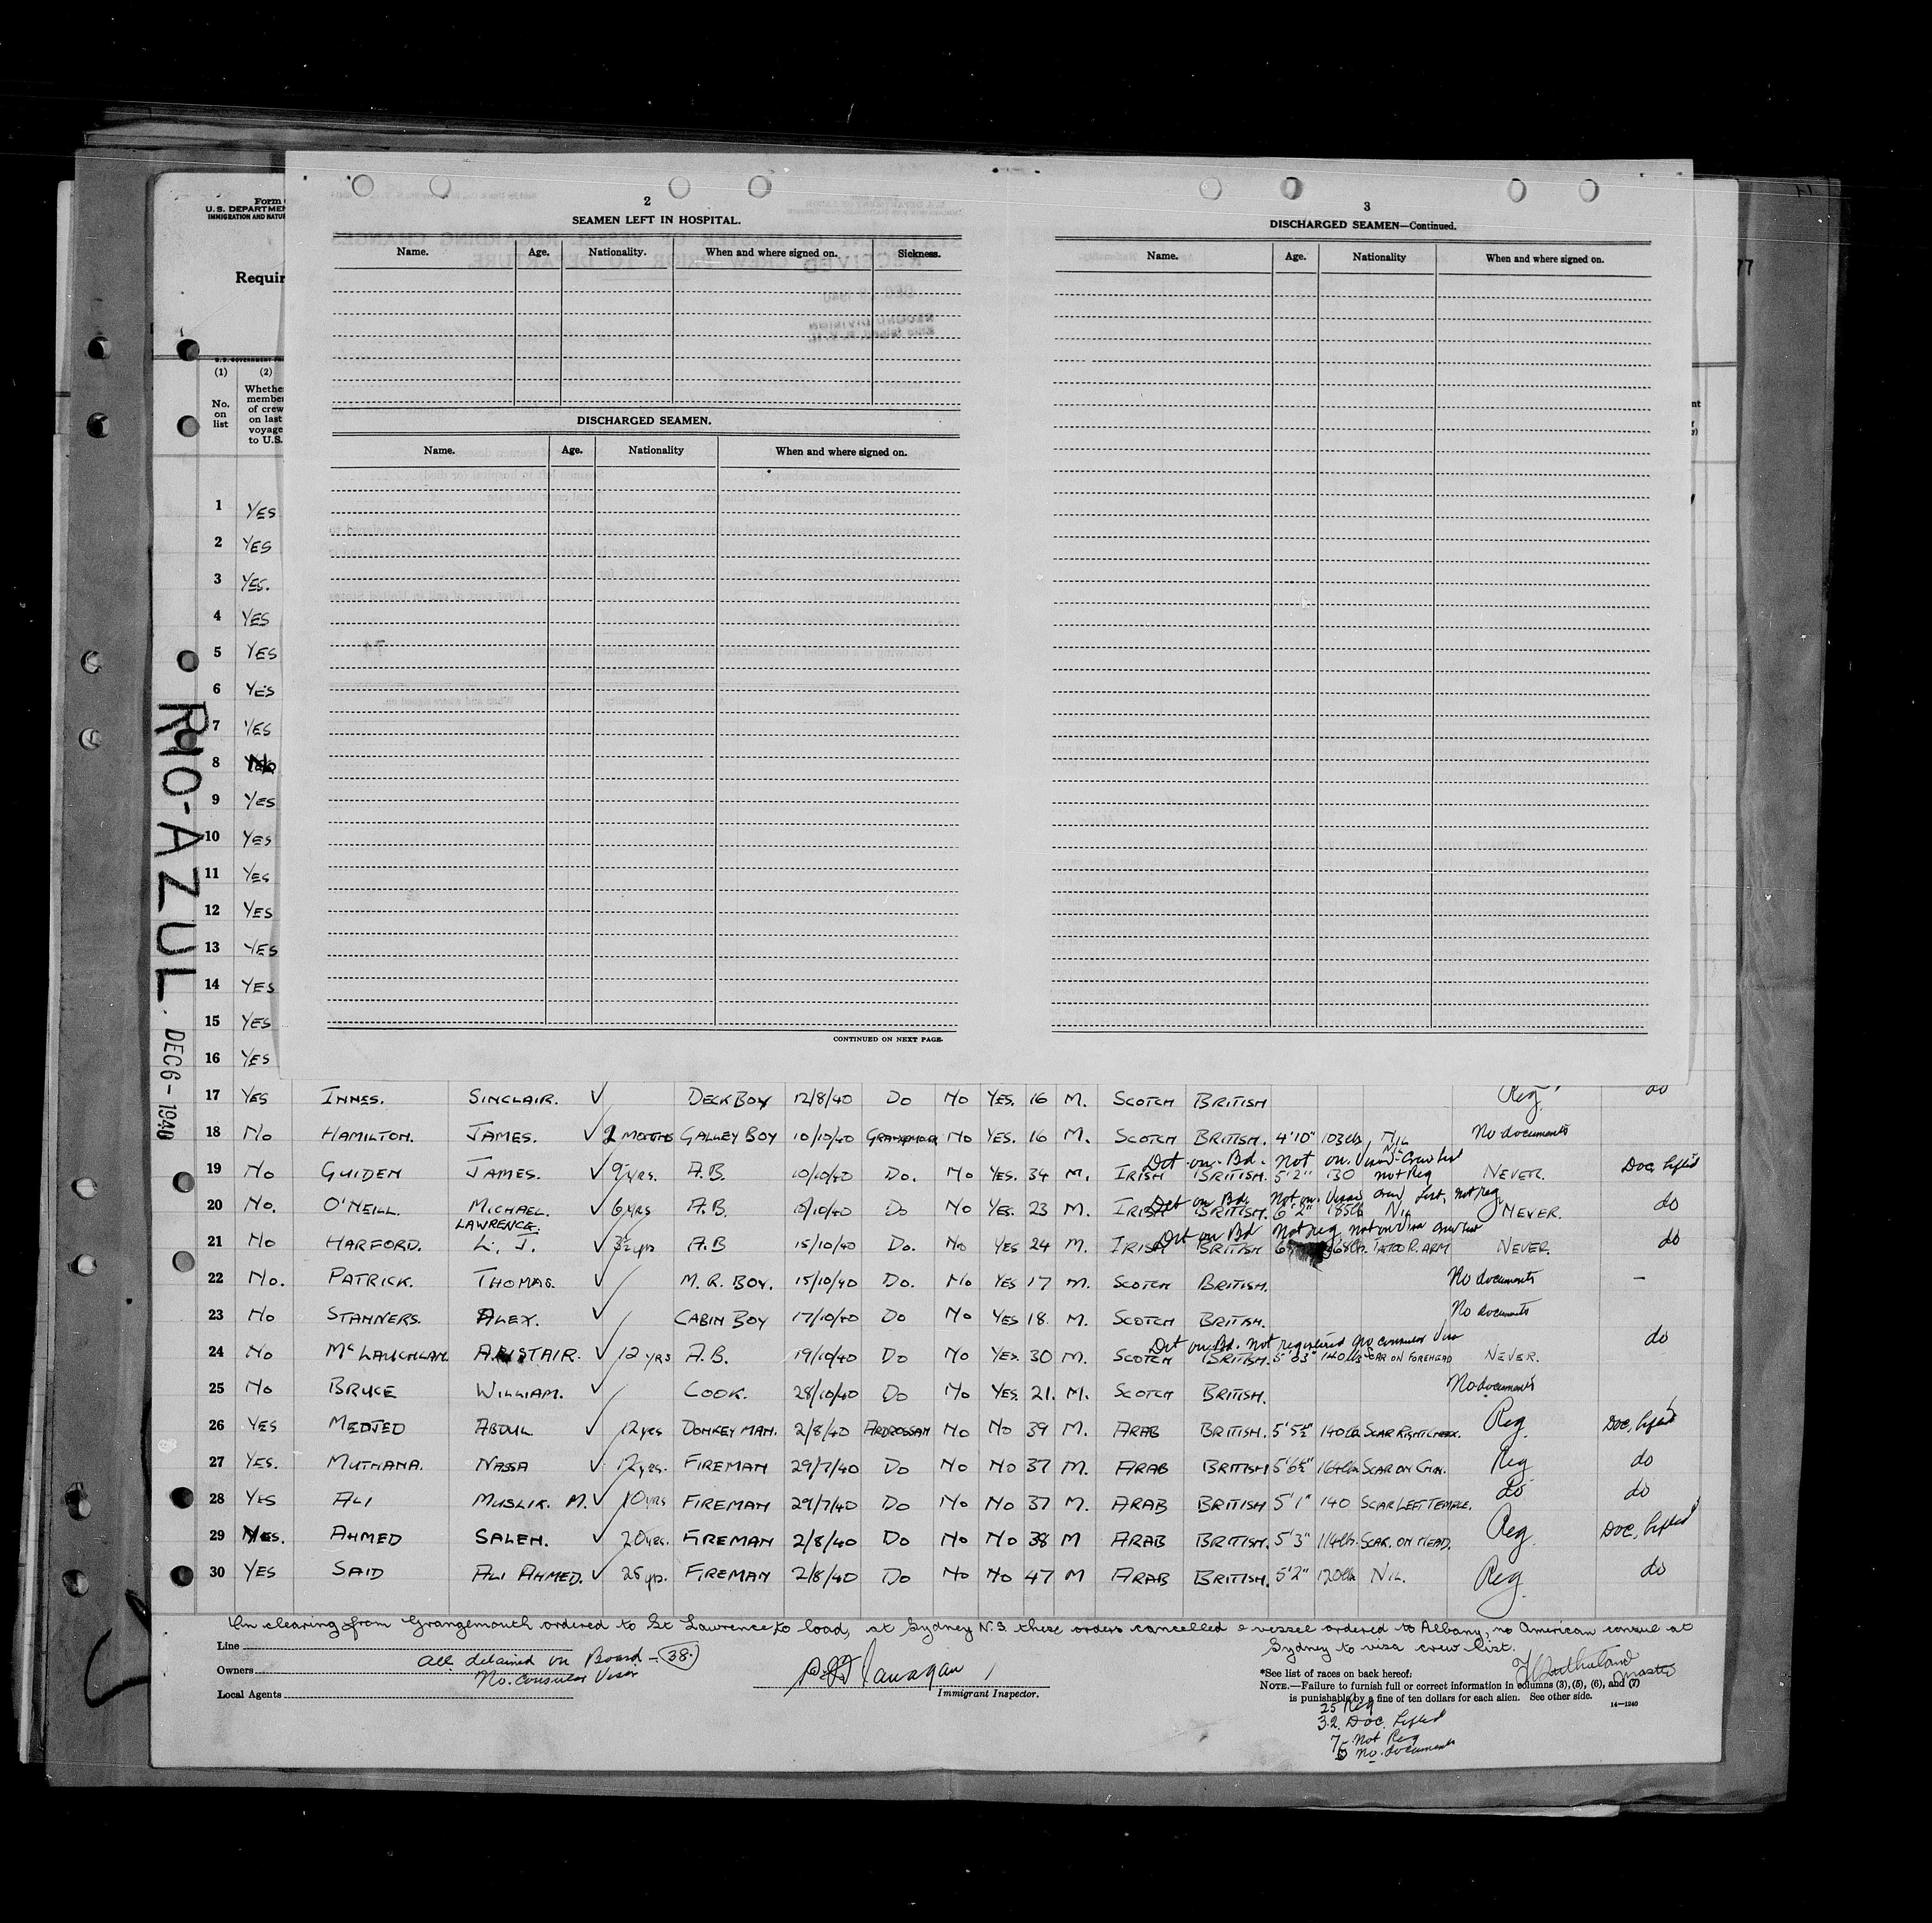 Form
U.S. DEPARTMEN
IMMIGRATION AND NATU
Requir
2
SEAMEN LEFT IN HOSPITAL.
Name. Age. Nationality. When and where signed on. Sickness.
DISCHARGED SEAMEN.
Name. Age. Nationality When and where signed on.
CONTINUED ON NEXT PAGE.
3
DISCHARGED SEAMEN—Continued.
Name. Age. Nationality When and where signed on.
77
(1) (2)
No. on list
Whethe member of crew on last voyage to U.S.
RIO-AZUL. DEC 6-1940
1 YES
2 YES
3 YES.
4 YES
5 YES
6 YES
7 YES
8 No
9 YES
10 YES
11 YES
12 YES
13 YES
14 YES
15 YES
16 YES
17 YES INNES. SINCLAIR. ✓ DECK BOY 12/8/40 DO NO YES. 16 M. SCOTCH BRITISH Reg. do
18 NO HAMILTON. JAMES. ✓ 2 MONTHS GALLEY BOY 10/10/40 GRANGEMOUTH NO YES. 16 M. SCOTCH BRITISH. 4'10" 103lbs NIL No documents
Det on Bd. Not on Visaed Crew list
19 NO GUIDEN JAMES. ✓ 9 yrs. A.B. 10/10/40 DO. NO YES. 34 M. IRISH BRITISH. 5'2" 130 not Reg NEVER. Doc, lifted
Det on Bd. Not on Visaed Crew List, not reg
20 NO. O'NEILL. MICHAEL. ✓ 6 yrs A.B. 10/10/40 DO NO YES. 23 M. IRISH BRITISH. 6'2" 185lb NIL NEVER. do
Det on Bd Not reg, not on Visa Crew list
21 NO HARFORD. LAWRENCE. L. J. ✓ 3½ yrs A.B 15/10/40 DO. NO YES 24 M. IRISH BRITISH 168lb. TATTOO R. ARM NEVER. do
22 NO. PATRICK. THOMAS. ✓ M. R. BOY. 15/10/40 DO. NO YES 17 M. SCOTCH BRITISH. No documents —
23 NO STANNERS. ALEX. ✓ CABIN BOY 17/10/40 DO NO YES 18. M. SCOTCH BRITISH. No documents
Det on Bd. Not registered No consular Visa
24 NO McLAUCHLAN. ALISTAIR. ✓ 12 YRS A.B. 19/10/40 DO NO YES. 30 M. SCOTCH BRITISH. 140lbs SCAR ON FOREHEAD NEVER. do
25 NO BRUCE WILLIAM. ✓ COOK. 28/10/40 DO NO YES. 21. M. SCOTCH BRITISH. No documents
26 YES MEDJED ABDUL ✓ 12 yrs DONKEY MAN. 2/8/40 ARDROSSAN NO NO 39 M. ARAB BRITISH. 5'5½" 140lb SCAR RIGHT CHEEK. Reg Doc, lifted
27 YES. MUTHANA. NASSA ✓ 12 yrs. FIREMAN 29/7/40 DO NO NO 37 M. ARAB BRITISH 5'6½" 164lbs SCAR ON CHIN. Reg do
28 YES ALI MUSLIK. M. ✓ 10 yrs FIREMAN 29/7/40 DO NO NO 37 M. ARAB BRITISH 5'1" 140 SCAR LEFT TEMPLE. do do
29 YES. AHMED SALEH. ✓ 20 yrs. FIREMAN 2/8/40 DO NO NO 38 M ARAB BRITISH. 5'3" 114lb. SCAR. ON HEAD. Reg Doc, lifted
30 YES SAID ALI AHMED. ✓ 25 yrs. FIREMAN 2/8/40 DO NO NO 47 M ARAB BRITISH. 5'2" 120lb NIL. Reg do
On clearing from Grangemouth ordered to St Lawrence to load, at Sydney N.S these orders cancelled & vessel ordered to Albany, no American consul at
Sydney to visa crew list.
Line
Owners
Local Agents
All detained on Board - 38.
No. Consular Visa
Immigrant Inspector.
Master
*See list of races on back hereof.
NOTE.—Failure to furnish full or correct information in columns (3), (5), (6), and (7)
is punishable by a fine of ten dollars for each alien. See other side.
14—1240
25 Reg
32 Doc. lifted
7 Not Reg
5 No. documents